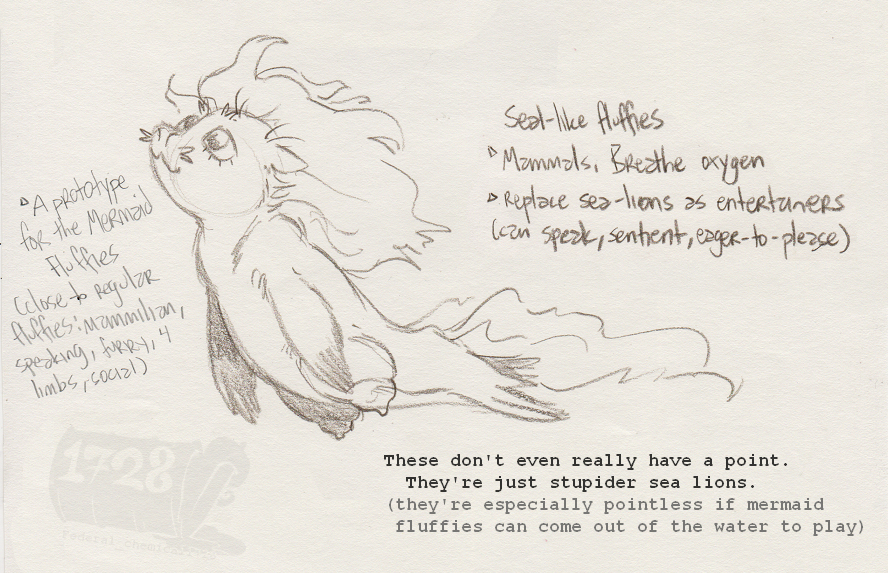 Seal-like fluffies
Mammals. Breathe oxygen
Replace sea-lions as entertaners
(can speak, sentient, eager-to-please)
A prototype
for the Mermaid
Fluffies
(close to regular
fluffies: Mammilian,
speaking, furry, 4
limbs, social)
1728
These don't even really have a point.
They're just stupider sea lions.
(they're especially pointless if mermaid
fluffies can come out of the water to play)